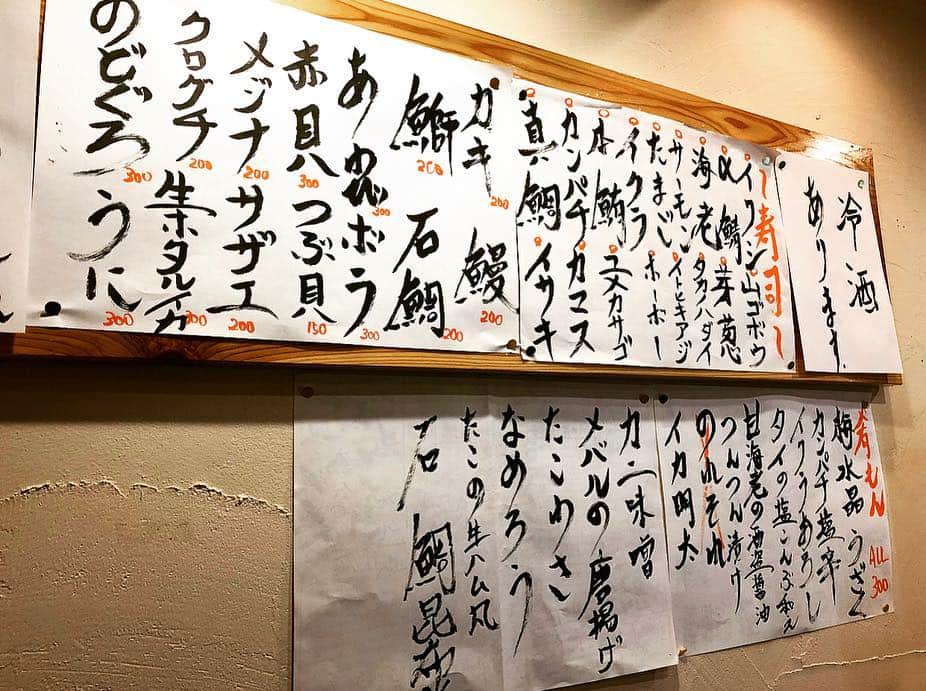 冷酒
あります
〜寿司〜
イワシ 山ゴボウ
〆鯖 芽葱
海老 タカハダイ
サーモン イトヒキアジ
たまご ホーボー
イクラ
本鮪 ユメカサゴ
カンパチ カマス
真鯛 イサキ
カキ 200 鰻 200
鰤 200 石鯛 200
あん肝 300 ボラ 300
赤貝 300 つぶ貝 150
メジナ 200 サザエ 200
クログチ 200 生ホタルイカ 300
のどぐろ 300 うに 300
肴もん ALL 300
梅水晶 うざく
カンパチ塩辛
イクラおろし
タイの塩こんぶ和え
甘海老の酒盗醤油
つんつん漬け
のれそれ
イカ明太
カニ味噌
メバルの唐揚げ
たこわさ
なめろう
たこの生ハム丸
石鯛昆布